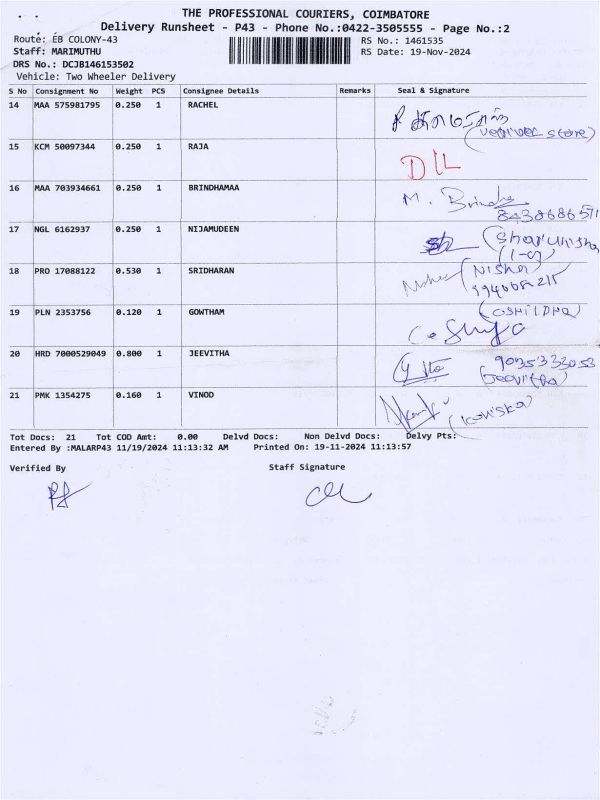 THE PROFESSIONAL COURIERS, COIMBATORE
Delivery Runsheet - P43 - Phone No.:0422-3505555 - Page No.:2
Route: EB COLONY-43 RS No.: 1461535
Staff: MARIMUTHU RS Date: 19-Nov-2024
DRS No.: DCJB146153502
Vehicle: Two Wheeler Delivery
S No Consignment No Weight PCS Consignee Details Remarks Seal & Signature
14 MAA 575981795 0.250 1 RACHEL
15 KCM 50097344 0.250 1 RAJA
D/L
16 MAA 703934661 0.250 1 BRINDHAMAA M. Brindha
8438686571
17 NGL 6162937 0.250 1 NIJAMUDEEN
18 PRO 17088122 0.530 1 SRIDHARAN (Nisha)
19 PLN 2353756 0.120 1 GOWTHAM
20 HRD 7000529049 0.800 1 JEEVITHA 9035333053
(Jeevitha)
21 PMK 1354275 0.160 1 VINOD
Tot Docs: 21 Tot COD Amt: 0.00 Delvd Docs: Non Delvd Docs: Delvy Pts:
Entered By :MALARP43 11/19/2024 11:13:32 AM Printed On: 19-11-2024 11:13:57
Verified By Staff Signature